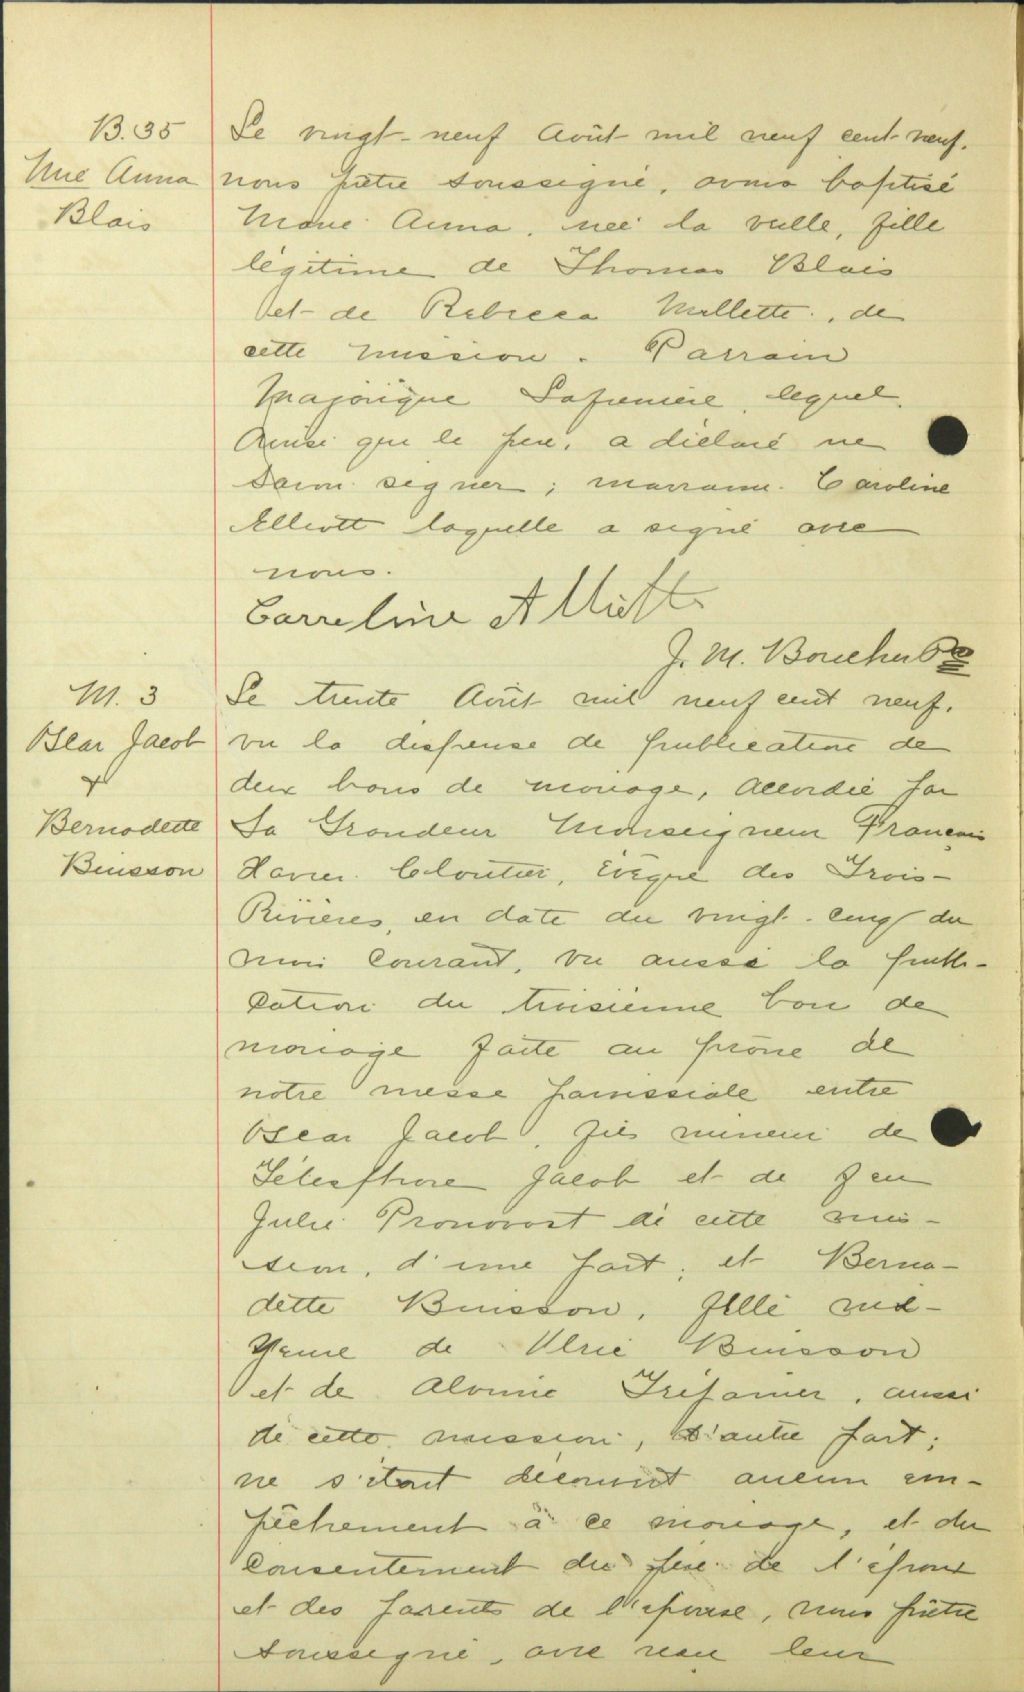 B. 35
Mie Anna
Blais
Le vingt-neuf Août mil neuf cent neuf.
nous prêtre soussigné, avons baptisé
Marie Anna, née la veille, fille
légitime de Thomas Blais
et de Rebecca Millette, de
cette mission. Parrain
Majorique Lafrenière, lequel,
Ainsi que le père, a déclaré ne
savoir signer; marraine Caroline
Elliott laquelle a signé avec
nous.
Carreline
J. M. Boucher Ptre
M. 3
Oscar Jacob
&
Bernadette
Buisson
Le trente Août mil neuf cent neuf.
vu la dispense de publication de
deux bans de mariage, accordée par
Sa Grandeur Monseigneur François
Xavier Cloutier, Évêque des Trois-
Rivières, en date du vingt-cinq du
mois courant, vu aussi la publi-
cation du troisième ban de
mariage faite au prône de
notre messe paroissiale entre
Oscar Jacob, fils mineur de
Télesphore Jacob et de feu
Julie Pronovost de cette mis-
sion, d'une part; et Berna-
dette Buisson, fille mi-
neure de Ulric Buisson
et de Alvinie Trépanier, aussi
de cette mission, d'autre part;
ne s'étant découvert aucun em-
pêchement à ce mariage, et du
consentement du père de l'époux
et des parents de l'épouse, nous prêtre
soussigné, avons reçu leur